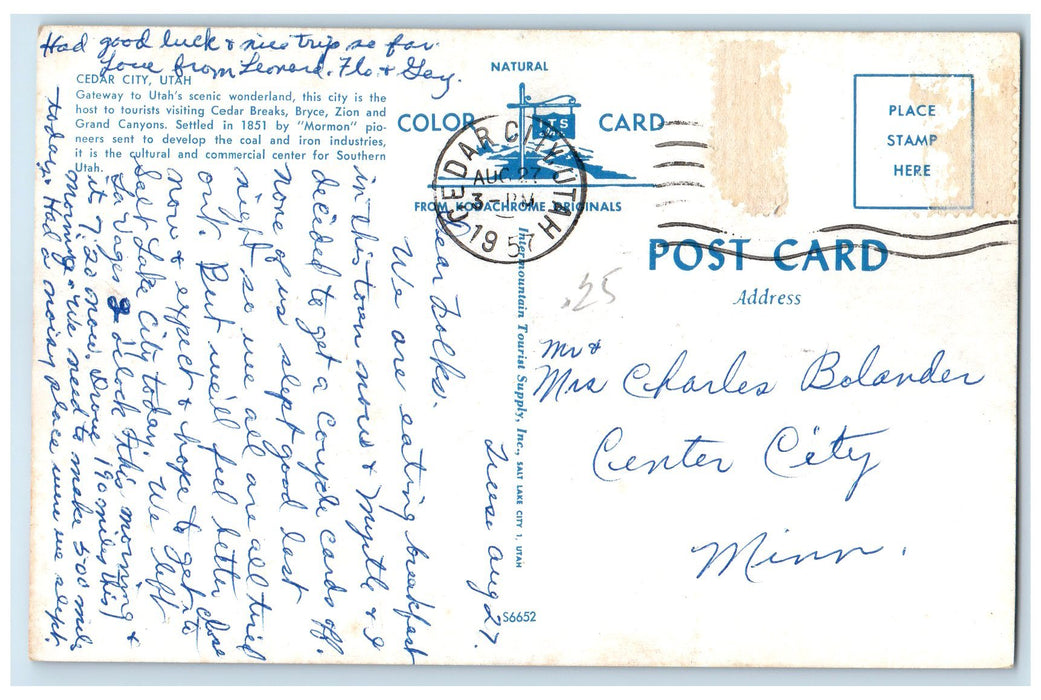 Had good luck & nice trip so far
Love from Leonard, Flo & Gay.
CEDAR CITY, UTAH
Gateway to Utah's scenic wonderland, this city is the
host to tourists visiting Cedar Breaks, Bryce, Zion and
Grand Canyons. Settled in 1851 by "Mormon" pio-
neers sent to develop the coal and iron industries,
it is the cultural and commercial center for Southern
Utah.
NATURAL
COLOR CARD
ITS
FROM KODACHROME ORIGINALS
CEDAR CITY UTAH
AUG 27
3 - PM
1957
PLACE
STAMP
HERE
POST CARD
Address
.25
Intermountain Tourist Supply, Inc., SALT LAKE CITY 1, UTAH
S6652
Mr &
Mrs Charles Bolander
Center City
Minn.
Tues Aug 27.
Dear Folks.
We are eating breakfast
in this town now & Myrtle & I
decided to get a couple cards off.
None of us slept good last
night so we all are all tried
out. But we'll feel better
now & expect & hope to get close to
Salt Lake City today. We left
Las Vagas 3 o'clock this morning &
its 7:20 now. Drove 190 miles this
morning & We need to make 500 miles
today. Had a noisy place were we slept.